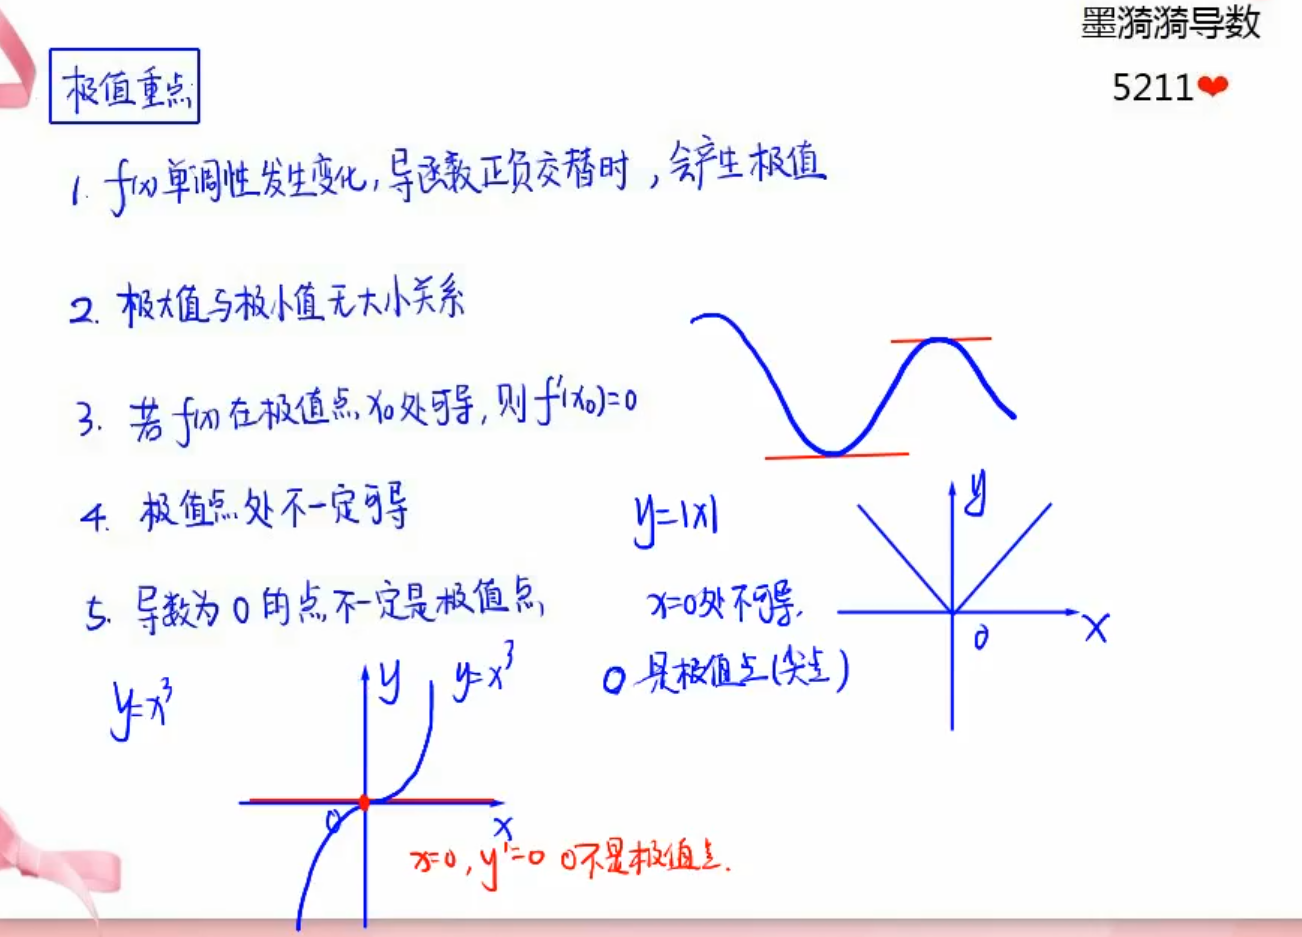 墨漪漪导数
5211❤
极值重点
1. f(x)单调性发生变化,导函数正负交替时,会产生极值
2. 极大值与极小值无大小关系
3. 若f(x)在极值点x₀处可导,则f'(x₀)=0
4. 极值点处不一定可导
y=|x|
y
x
0
x=0处不可导.
0是极值点(尖点)
5. 导数为0的点不一定是极值点,
y=x³
y
y=x³
0
x
x=0,y'=0 0不是极值点.